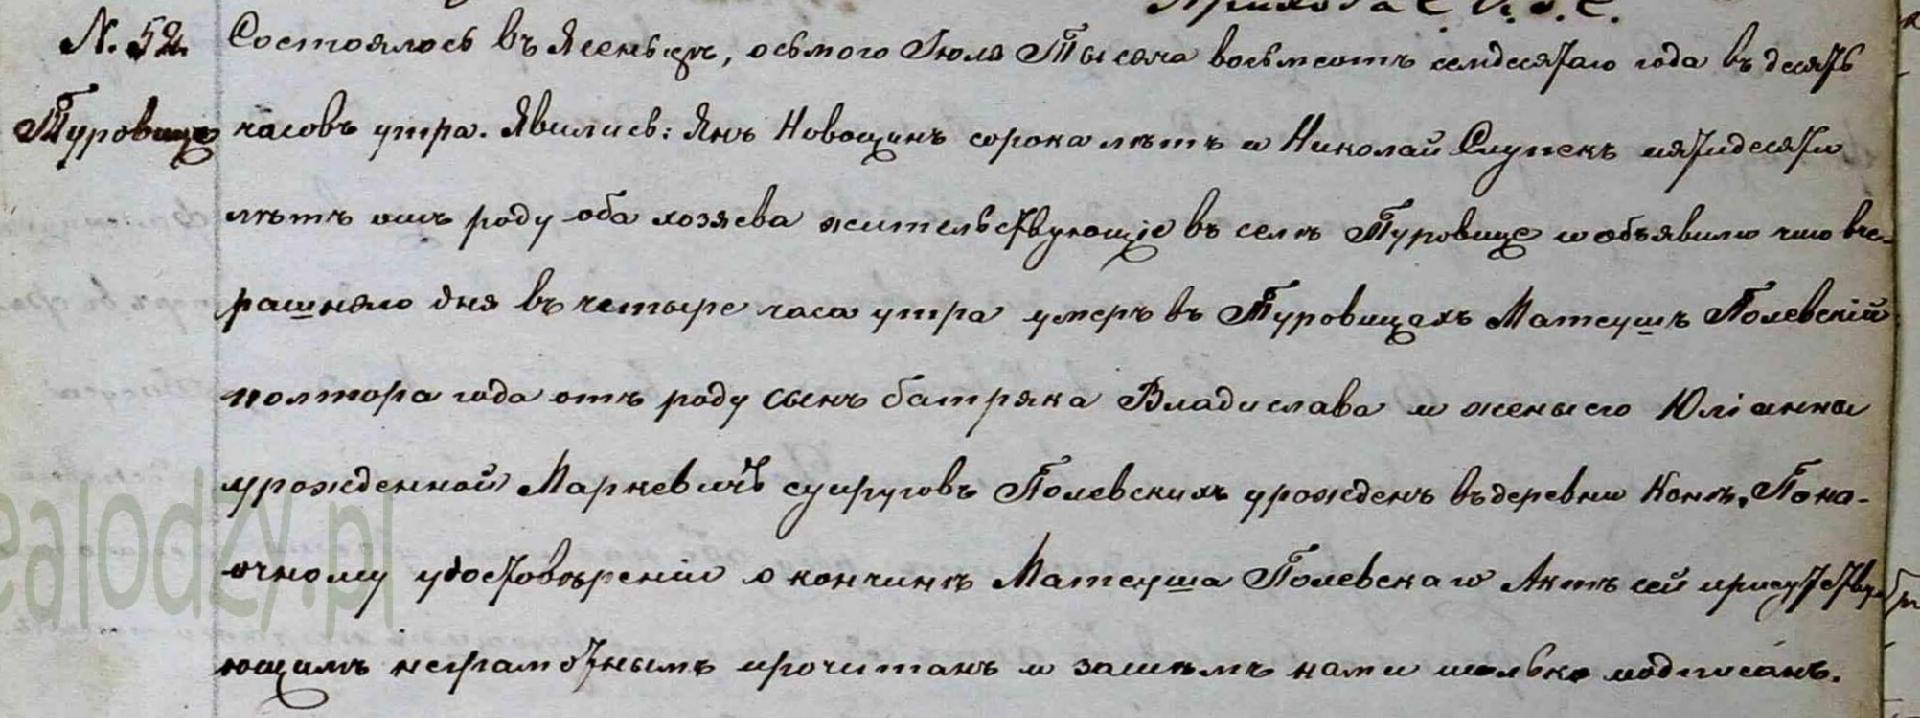 Прихода С
N. 52. Состоялось въ Ясеньцѣ, осьмого Іюля Тысяча восьмсотъ семдесятаго года въ десять
Туровице часовъ утра. Явились: Янъ Новоцинъ сорока лѣтъ и Николай Слупекъ пятидесяти
лѣтъ отъ роду оба хозяева жительствующіе въ селѣ Туровице и объявили что вче-
рашняго дня въ четыре часа утра умеръ въ Туровицахъ Матеушъ Полевскій
полтора года отъ роду сынъ батряка Владислава и жены его Юліанны
урожденной Маркевичъ супруговъ Полевскихъ урожденъ въ деревни Конъ. По на-
очному удостовѣреніи о кончинѣ Матеуша Полевскаго Актъ сей присутству-
ющимъ неграмотнымъ прочитанъ и затѣмъ нами только подписанъ.
ealodzy.pl